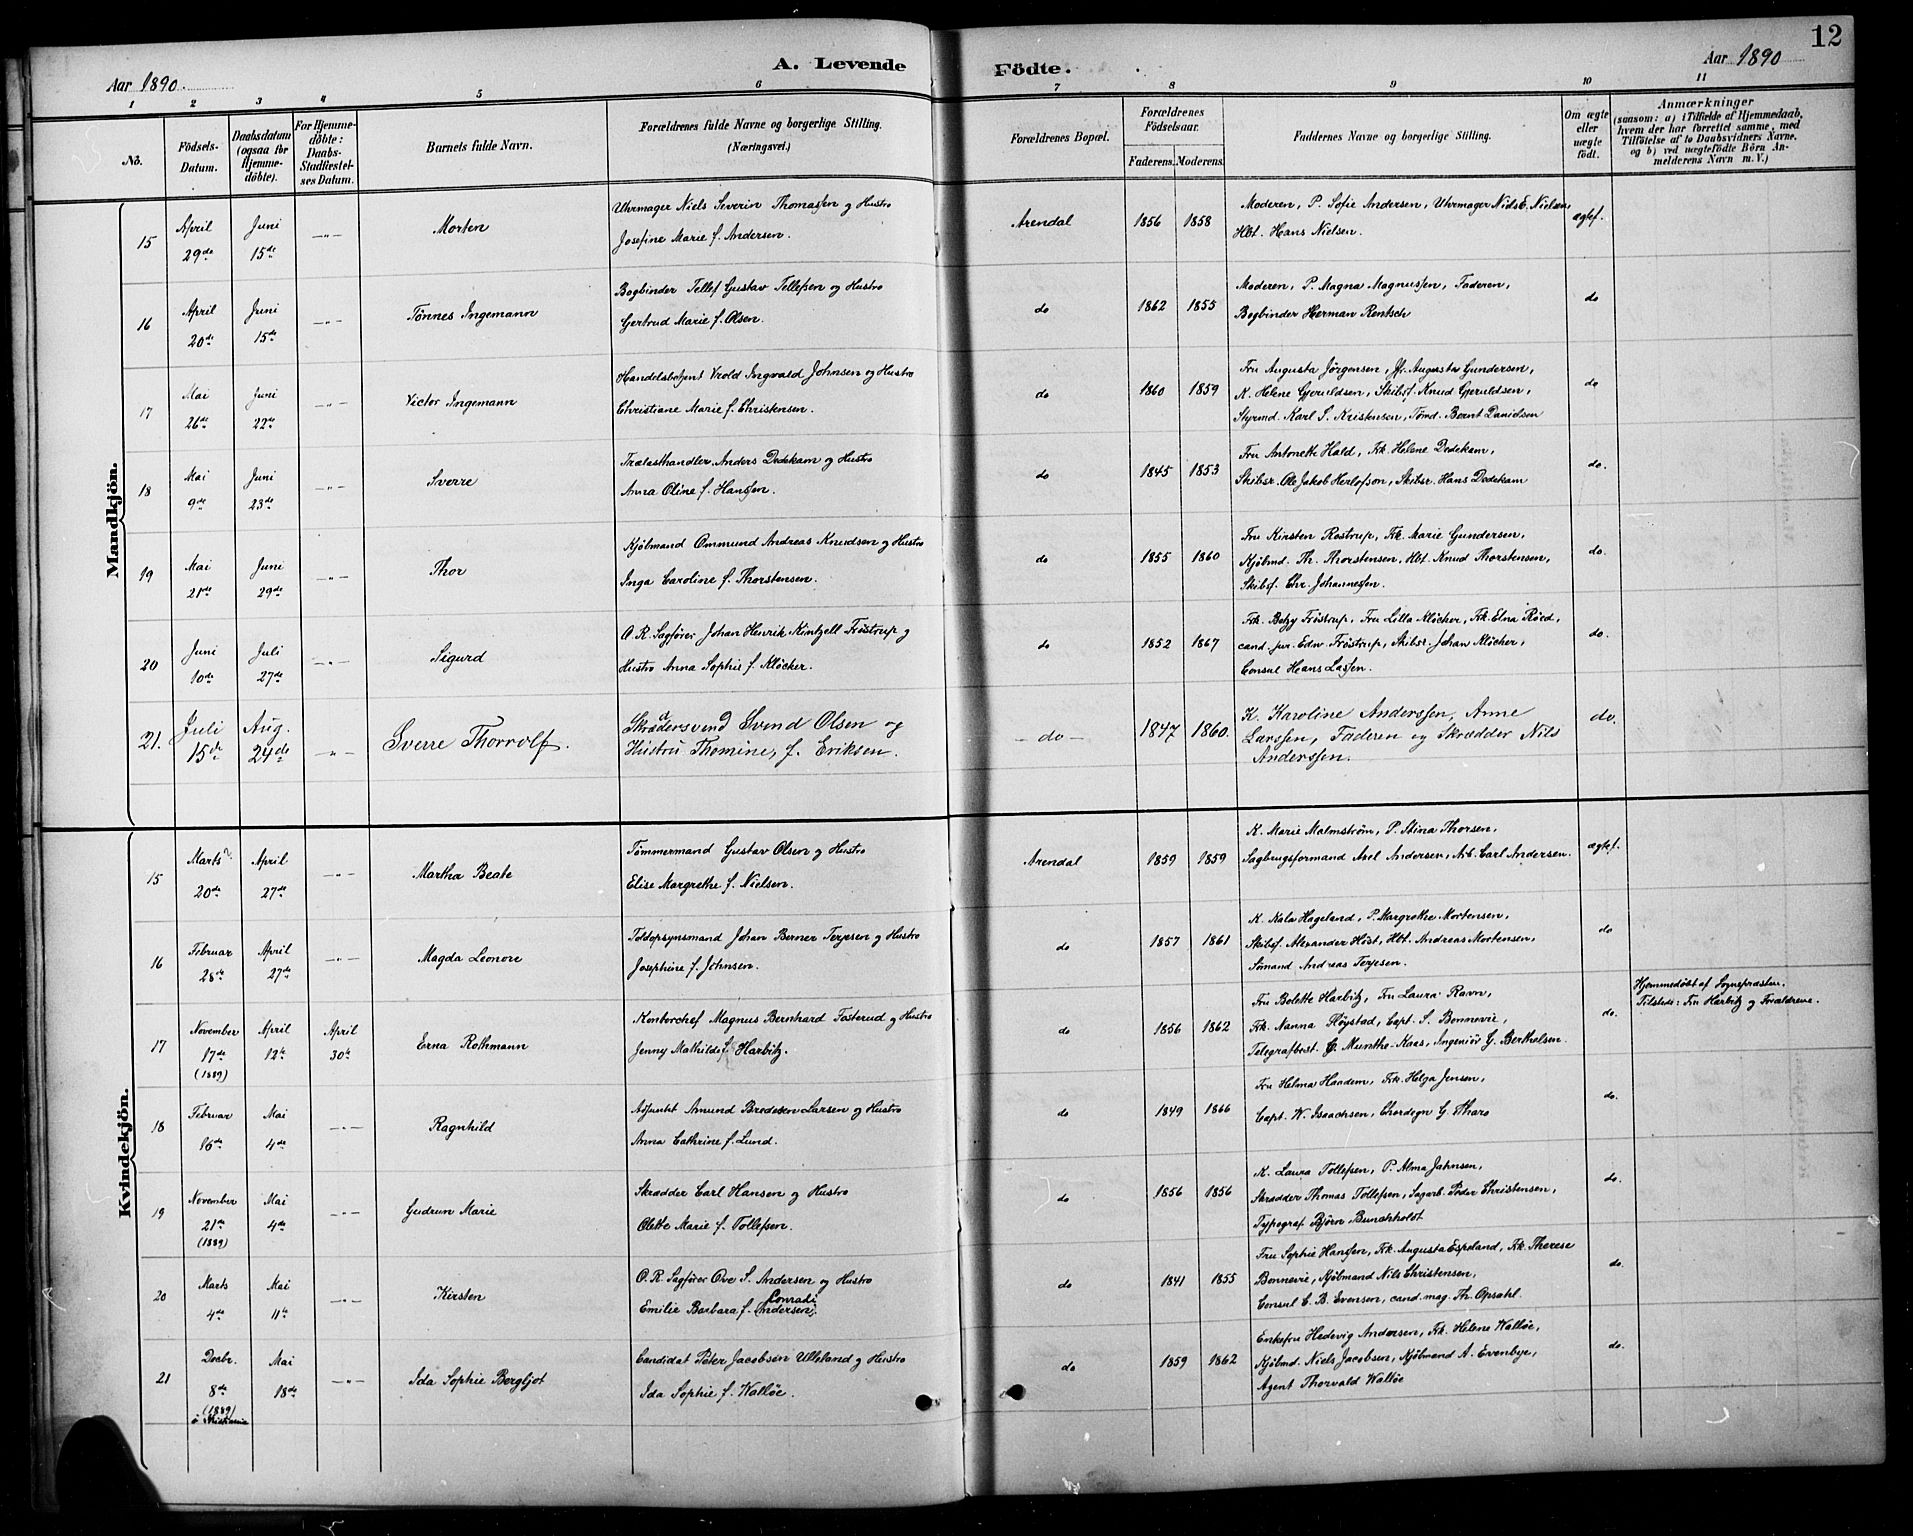 12
Aar 1890. A. Levende Födte. Aar 1890
1 2 3 4 5 6 7 8 9 10 11
No.
Födsels-Datum.
Daabsdatum (ogsaa for Hjemme-döbte).
For Hjemme-döbte: Daabs-Stadfæstel-ses Datum.
Barnets fulde Navn.
Forældrenes fulde Navne og borgerlige Stilling.
(Næringsvei.)
Forældrenes Bopæl.
Forældrenes Födselsaar.
Faderens. Moderens.
Faddernes Navne og borgerlige Stilling.
Om ægte eller uægte födt.
Anmærkninger
(saasom: a) i Tilfælde af Hjemmedaab, hvem der har forrettet samme, med Tilföielse af to Daabsvidners Navne, og b) ved uægtefödte Börn Anmelderens Navn m. V.)
Mandkjön.
15 April 29de Juni 15de —"— Morten
Uhrmager Niels Severin Thomassen og Hustro
Josefine Marie f. Andersen.
Arendal 1856 1858
Moderen, P. Sofie Andersen, Uhrmager Nids E. Nielsen
Hbt. Hans Nielsen.
ægtef.
16 April 20de Juni 15de —"— Tönnes Ingemann
Bogbinder Tellef Gustav Tellefsen og Hustro
Gertrud Marie f. Olsen.
do 1862 1855
Moderen, P. Magna Magnussen, Faderen,
Bogbinder Herman Rentsch
do
17 Mai 26de Juni 22de —"— Victor Ingemann
Handelsbetjent Vrold Ingvald Johnsen og Hustro
Christiane Marie f. Christensen.
do 1860 1859
Fru Augusta Jörgensen, Jfr. Augusta Gundersen,
K. Helene Gjeruldsen, Skibsf. Knud Gjeruldsen,
Styrmd. Karl S. Kristensen, Tömd. Bernt Danielsen
do
18 Mai 9de Juni 23de —"— Sverre
Trælasthandler Anders Dedekam og Hustro
Anna Oline f. Hansen.
do 1845 1853
Fru Antonette Hald, Frk. Helene Dedekam,
Skibsr. Ole Jakob Herlofson, Skibsr. Hans Dedekam
do.
19 Mai 21de Juni 29de —"— Thor
Kjöbmand Ommund Andreas Knudsen og Hustro
Inga Caroline f. Thorstensen.
do 1855 1860
Fru Kirsten Rostrup, Frk. Marie Gundersen,
Kjöbmd. Th. Thorstensen, Hbt. Knud Thorstensen,
Skibsf. Chr. Johannessen.
do.
20 Juni 10de Juli 27de —"— Sigurd
O. R. Sagförer Johan Henrik Kintzell Fröstrup og
Hustro Anna Sophie f. Klöcker.
do 1852 1867
Frk. Betzy Fröstrup, Fru Lilla Klöcker, Frk. Elna Röed,
cand. jur. Edw. Fröstrup, Skibsr. Johan Klöcker,
Consul Hans Lassen.
do.
21. Juli 15de Aug. 24de —"— Sverre Thorrolf.
Skrædersvend Svend Olsen og
Hustru Thomine, f. Eriksen.
—do— 1847 1860.
K. Karoline Anderssen, Anne
Larssen, Faderen og Skrædder Nils
Anderssen.
do.
Kvindekjön.
15 Marts 20de April 27de —"— Martha Beate
Tömmermand Gustav Olsen og Hustro
Elise Margrethe f. Nielsen.
Arendal 1859 1859
K. Marie Malmström, P. Stina Thorsen,
Sagbrugsformand Axel Andersen, Arb. Carl Andersen.
ægtef.
16 Februar 28de April 27de —"— Magda Leonore
Toldopsynsmand Johan Berner Terjesen og Hustro
Josephine f. Johnsen.
do 1857 1861
K. Kala Hageland, P. Margrethe Mortensen,
Skibsf. Alexander Höst, Hbt. Andreas Mortensen,
Sömand Andreas Terjesen.
do
17 November 17de (1889) April 12te April 30te Erna Rothmann
Kontorchef Magnus Bernhard Fosterud og Hustro
Jenny Mathilde f. Harbitz.
do 1856 1862
Fru Bolette Harbitz, Fru Laura Ravn,
Frk. Nanna Flöystad, Capt. S. Bonnevie,
Telegrafbest. G. Munthe-Kaas, Ingeniör G. Berthelsen.
do.
Hjemmedöbt af Sognepræsten.
Tilstede: Fru Harbitz og Forældrene.
18 Februar 16de Mai 4de —"— Ragnhild
Adjunkt Amund Bredesen Larsen og Hustro
Anna Cathrine f. Lund.
do 1849 1866
Fru Helma Haadem, Frk. Helga Jensen,
Capt. W. Isaachsen, Chordegn G. Tharo
do.
19 November 21de (1889) Mai 4de —"— Gudrun Marie
Skrædder Carl Hansen og Hustro
Olette Marie f. Tollefsen.
do 1856 1856
K. Laura Tollefsen, P. Alma Jahnsen,
Skrædder Thomas Tollefsen, Sagarb. Peder Christensen,
Typograf Björn Bunchholdt
do.
20 Marts 4de Mai 11te —"— Kirsten
O. R. Sagförer Ove S. Andersen og Hustro
Emilie Barbara f. (Andersen) Conradi
do 1841 1855
Fru Sophie Hansen, Frk. Augusta Espeland, Frk. Therese
Bonnevie, Kjöbmand Nils Christensen,
Consul C. B. Evensen, cand. mag. Th. Opsahl
do.
21 Decbr. 8de (1889) i Kristiania Mai 18de —"— Ida Sophie Bergljot
Candidat Peter Jacobsen Ulleland og Hustro
Ida Sophie f. Walløe.
do 1859 1862
Enkefru Hedevig Andersen, Frk. Helene Walløe,
Kjöbmd. Niels Jacobsen, Kjöbmand A. Evenbye,
Agent Thorvald Walløe
do.